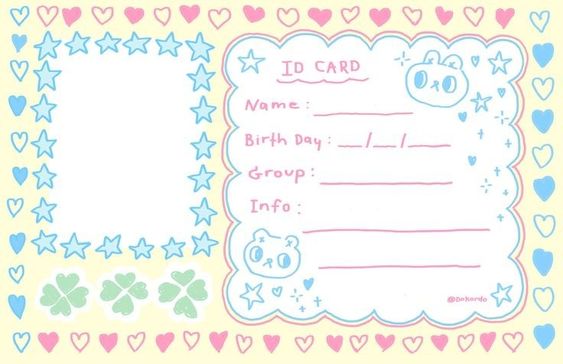 ID CARD
Name: ________
Birth Day: __/__/____
Group: ________
Info: ________
@Dokordo